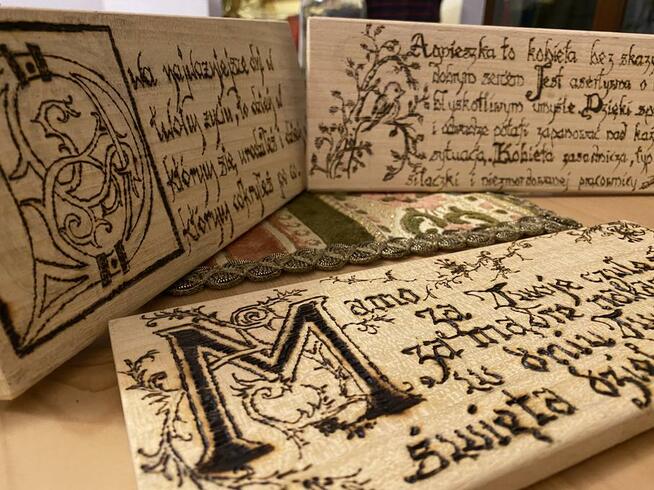 Dwa najważniejsze dni w
Twoim życiu, to dzień w
którym się urodziłeś i dzień
którym odkryłeś po co.
Agnieszka to kobieta bez skazy
dobrym sercem Jest asertywna o
błyskotliwym umyśle. Dzięki
i odwadze potrafi zapanować nad każ
sytuacją. Kobieta zasadnicza, typ
siłaczki i niezmordowanej pracownicy
Mamo
za Twoje czuło
za mądre
w dniu
święta